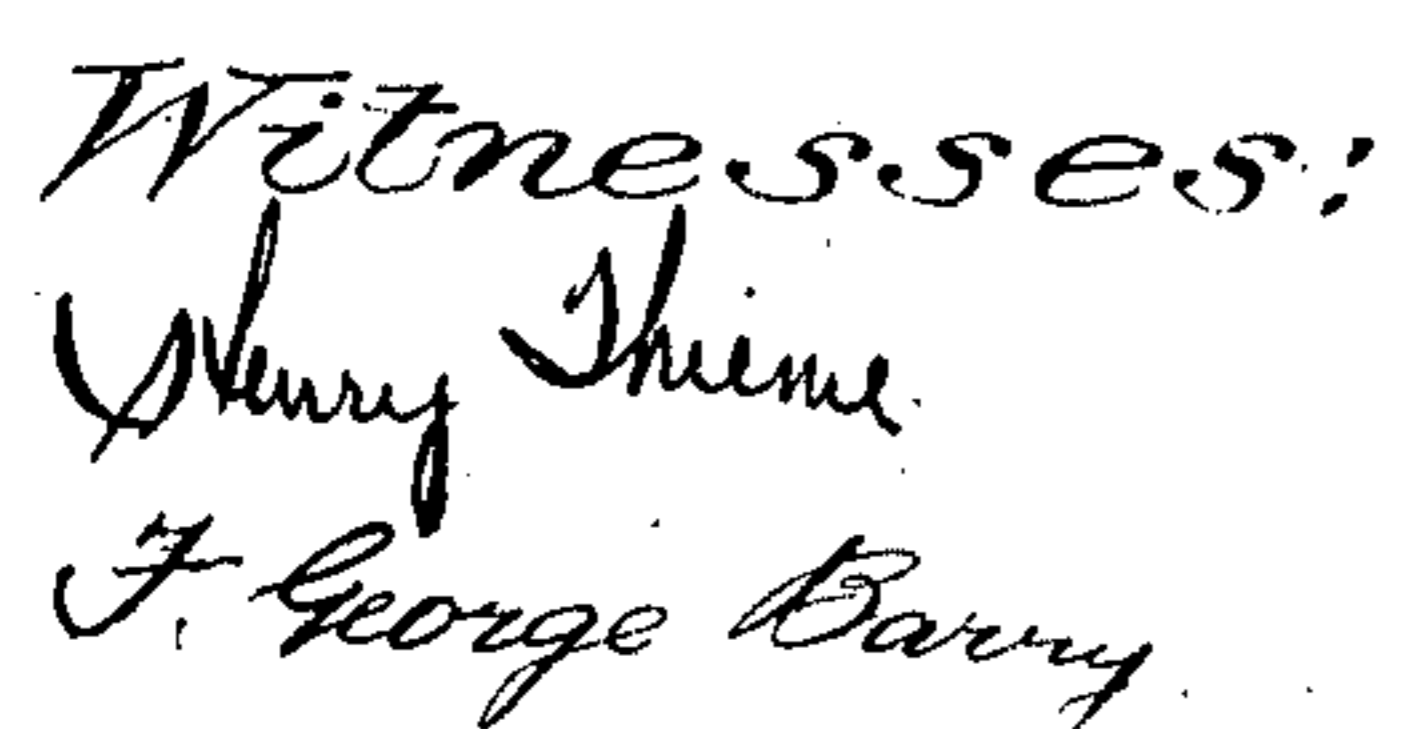 Witnesses:
Henry Thieme
F. George Barry